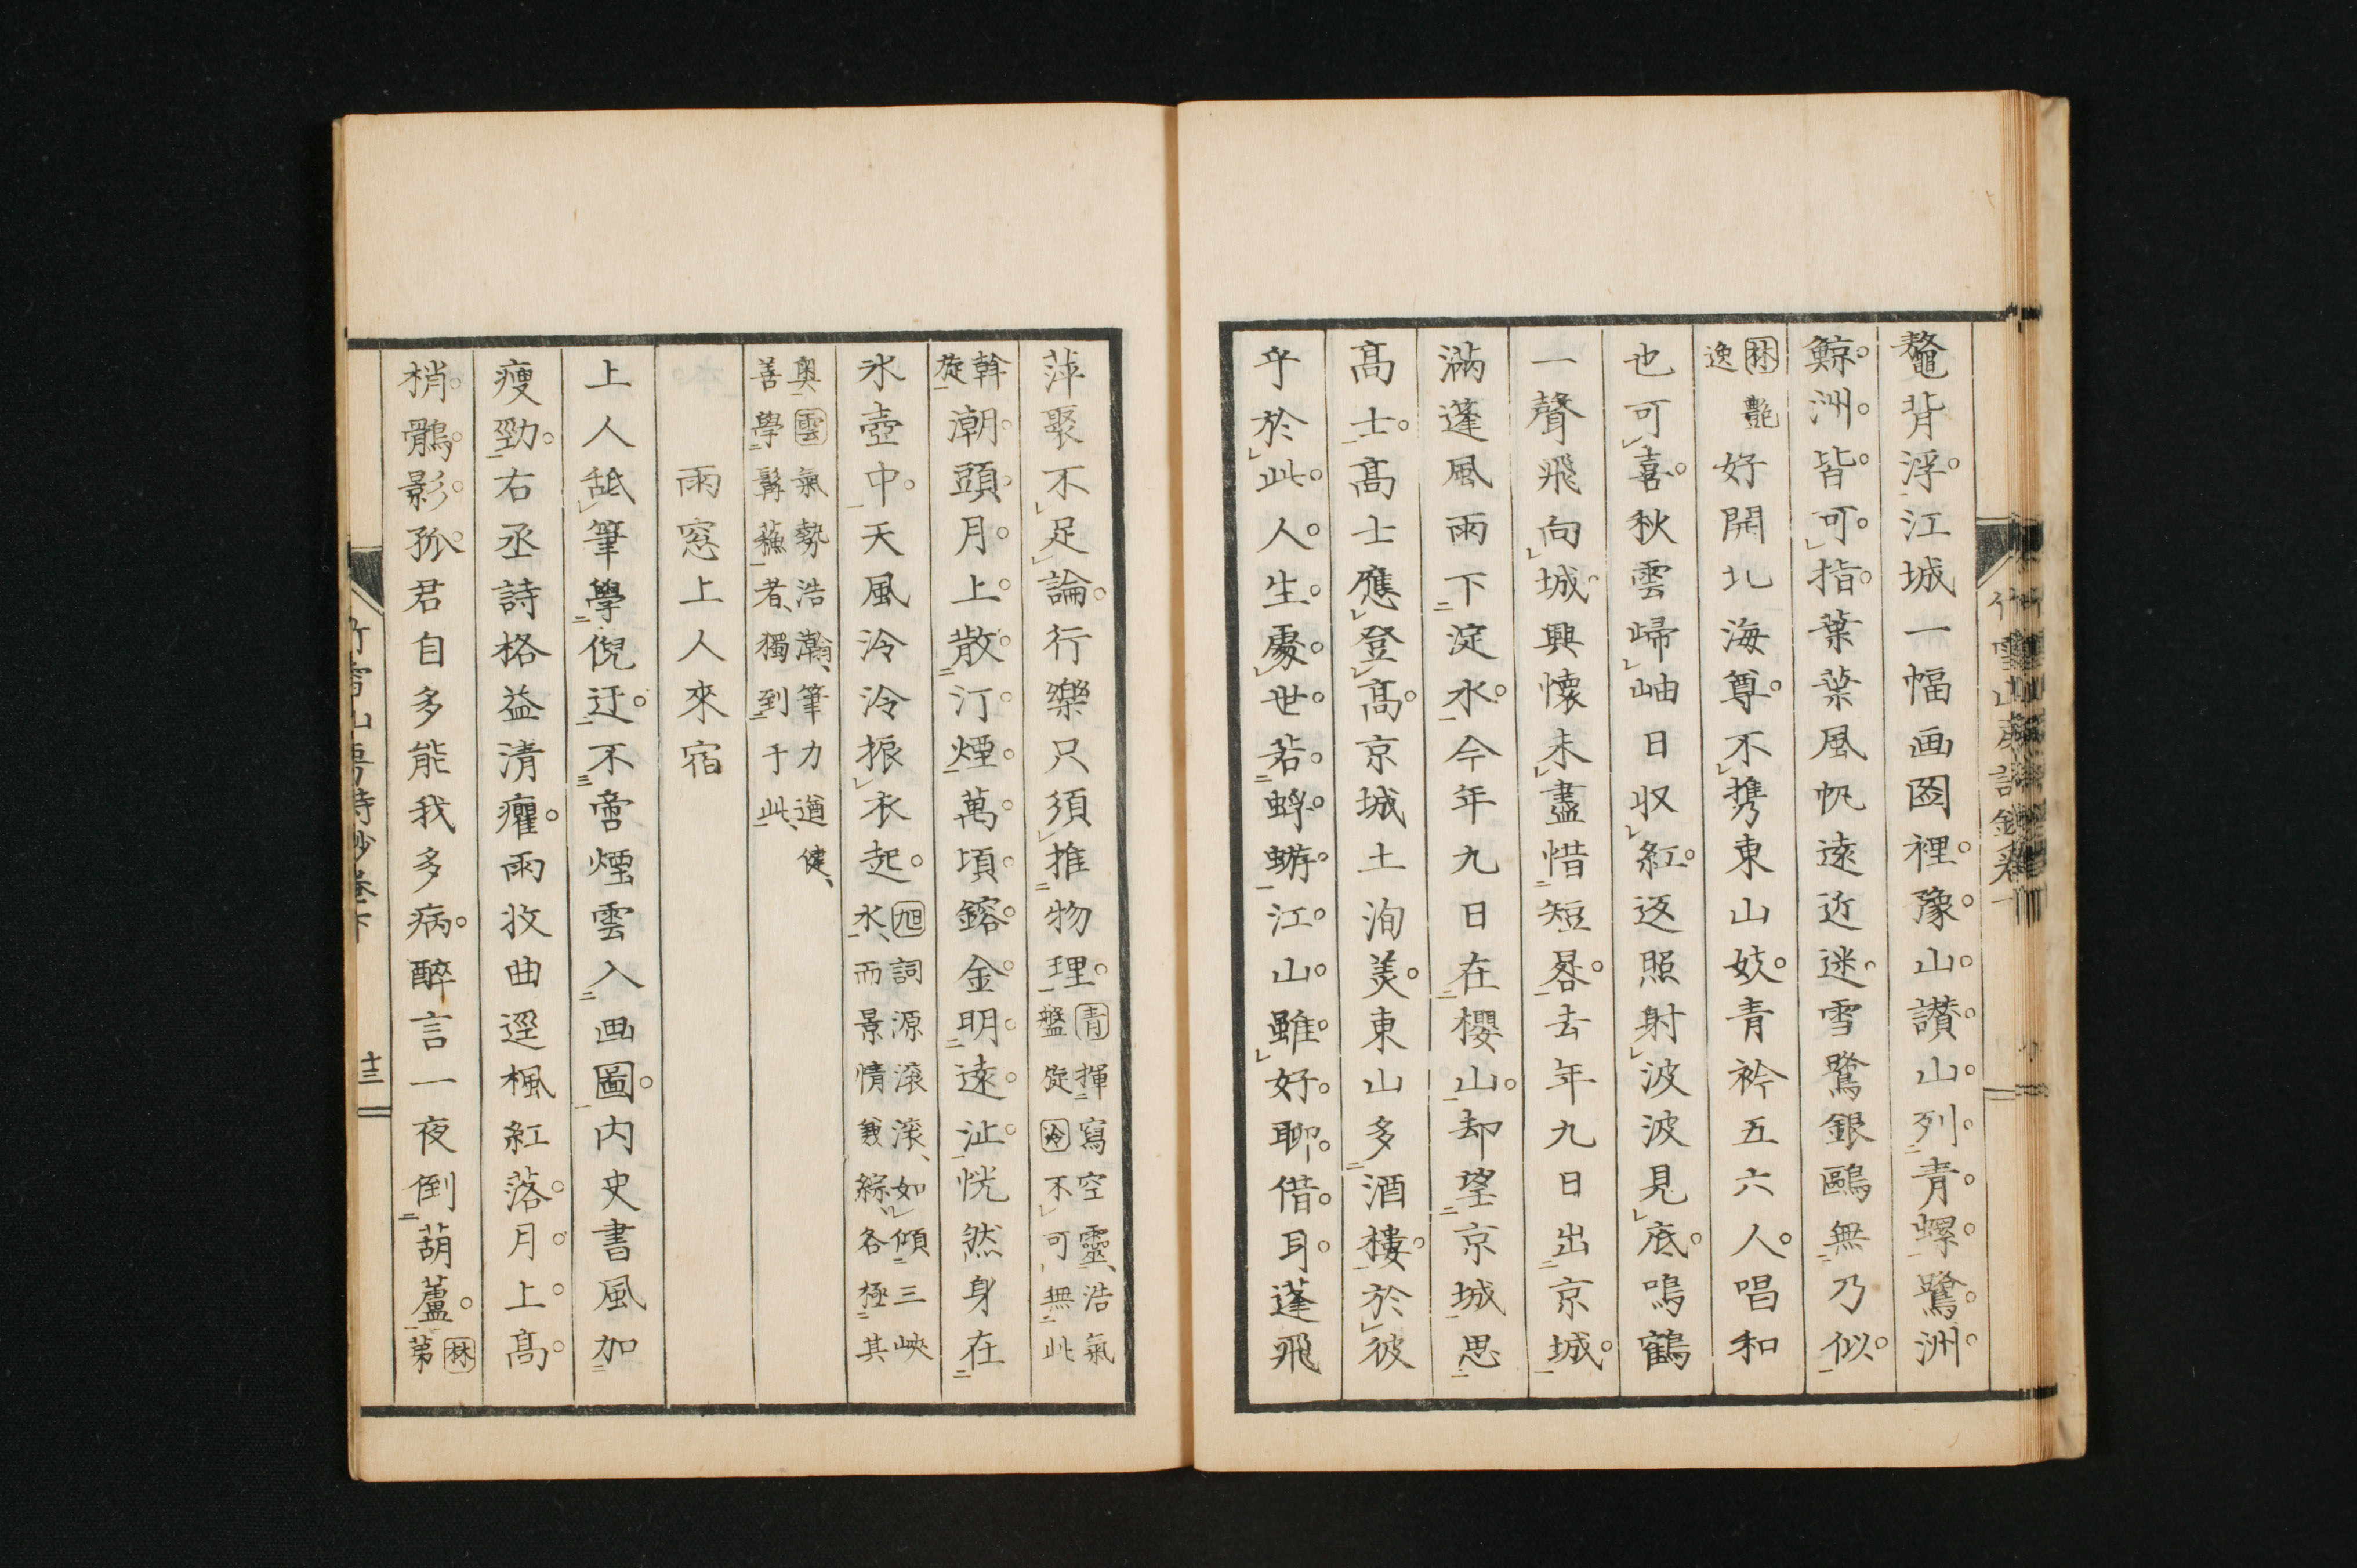 鼇背浮江城一幅画圖裡豫山讃山列青螺鷺洲
鯨洲皆可指葉葉風帆遠近迷雪鷺銀鷗無乃似
林艶逸好開北海尊不携東山妓青衿五六人唱和
也可喜秋雲歸岫日収紅返照射波波見底鳴鶴
一聲飛向城興懐未盡惜短晷去年九日出京城
滿蓬風雨下淀水今年九日在櫻山却望京城思
髙士髙士應登髙京城土洵美東山多酒樓於彼
乎於此人生處世若蜉蝣江山雖好聊借耳蓬飛
萍聚不足論行樂只須推物理青揮寫空靈浩氣盤旋冷不可無此
斡旋潮頭月上散汀煙萬頃鎔金明遠沚恍然身在
氷壺中天風泠泠振衣起旭詞源滚滚如傾三峽水而景情錯綜各極其
奥雲氣勢浩瀚筆力遒健善學髯蘓者獨到于此
雨窓上人來宿
上人舐筆學倪迂不啻煙雲入画圖内史書風加
瘦勁右丞詩格益清癯雨收曲逕楓紅落月上髙
梢鶻影孤君自多能我多病醉言一夜倒葫蘆林第
竹雪山房詩鈔卷下
十三